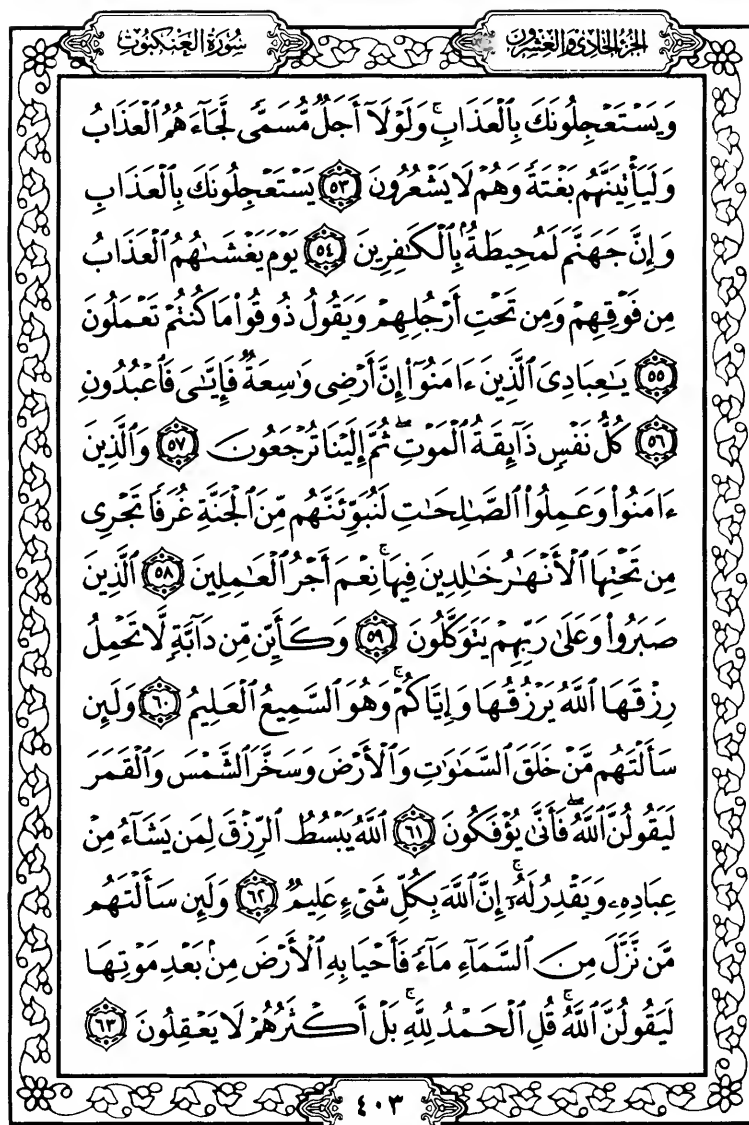 الجزء الحادي والعشرون
سُورَةُ العَنكبُوت
وَيَسْتَعْجِلُونَكَ بِٱلْعَذَابِ ۚ وَلَوْلَآ أَجَلٌ مُّسَمًّى لَّجَآءَهُمُ ٱلْعَذَابُ
وَلَيَأْتِيَنَّهُم بَغْتَةً وَهُمْ لَا يَشْعُرُونَ ٥٣ يَسْتَعْجِلُونَكَ بِٱلْعَذَابِ
وَإِنَّ جَهَنَّمَ لَمُحِيطَةٌۢ بِٱلْكَـٰفِرِينَ ٥٤ يَوْمَ يَغْشَىٰهُمُ ٱلْعَذَابُ
مِن فَوْقِهِمْ وَمِن تَحْتِ أَرْجُلِهِمْ وَيَقُولُ ذُوقُوا۟ مَا كُنتُمْ تَعْمَلُونَ
٥٥ يَـٰعِبَادِىَ ٱلَّذِينَ ءَامَنُوٓا۟ إِنَّ أَرْضِى وَٰسِعَةٌ فَإِيَّـٰىَ فَٱعْبُدُونِ
٥٦ كُلُّ نَفْسٍ ذَآئِقَةُ ٱلْمَوْتِ ۖ ثُمَّ إِلَيْنَا تُرْجَعُونَ ٥٧ وَٱلَّذِينَ
ءَامَنُوا۟ وَعَمِلُوا۟ ٱلصَّـٰلِحَـٰتِ لَنُبَوِّئَنَّهُم مِّنَ ٱلْجَنَّةِ غُرَفًا تَجْرِى
مِن تَحْتِهَا ٱلْأَنْهَـٰرُ خَـٰلِدِينَ فِيهَا ۚ نِعْمَ أَجْرُ ٱلْعَـٰمِلِينَ ٥٨ ٱلَّذِينَ
صَبَرُوا۟ وَعَلَىٰ رَبِّهِمْ يَتَوَكَّلُونَ ٥٩ وَكَأَيِّن مِّن دَآبَّةٍ لَّا تَحْمِلُ
رِزْقَهَا ٱللَّهُ يَرْزُقُهَا وَإِيَّاكُمْ ۚ وَهُوَ ٱلسَّمِيعُ ٱلْعَلِيمُ ٦٠ وَلَئِن
سَأَلْتَهُم مَّنْ خَلَقَ ٱلسَّمَـٰوَٰتِ وَٱلْأَرْضَ وَسَخَّرَ ٱلشَّمْسَ وَٱلْقَمَرَ
لَيَقُولُنَّ ٱللَّهُ ۖ فَأَنَّىٰ يُؤْفَكُونَ ٦١ ٱللَّهُ يَبْسُطُ ٱلرِّزْقَ لِمَن يَشَآءُ مِنْ
عِبَادِهِۦ وَيَقْدِرُ لَهُۥٓ ۚ إِنَّ ٱللَّهَ بِكُلِّ شَىْءٍ عَلِيمٌ ٦٢ وَلَئِن سَأَلْتَهُم
مَّن نَّزَّلَ مِنَ ٱلسَّمَآءِ مَآءً فَأَحْيَا بِهِ ٱلْأَرْضَ مِنۢ بَعْدِ مَوْتِهَا
لَيَقُولُنَّ ٱللَّهُ ۚ قُلِ ٱلْحَمْدُ لِلَّهِ ۚ بَلْ أَكْثَرُهُمْ لَا يَعْقِلُونَ ٦٣
٤٠٣